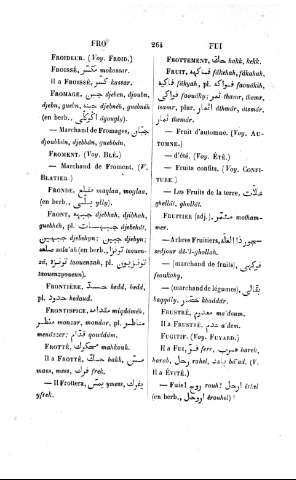 FRO
264
FUI
FROIDEUR. (Voy. FROID.)
FROISSÉ, مكسّر mokassar.
Il a FROISSÉ, كسّر kassar.
FROMAGE, جبن djeben, djoubn,
djebn, guebn, جبنه djebnèh, guebnèh
(en berb.,
— Marchand de Fromages, جبّان
djoubbân, djebbân, guebbân.
FROMENT. (Voy. BLÉ.)
— Marchand de Froment. (V.
BLATIER.)
FRONDE, مقلاع maqlaa, moqlaa,
(en berb.,
FRONT, جبهة djebhah, djibhah,
guebhèh, pl. جبهات djebehât,
جبين djebyn; جبهين djebhyn;
(en berb., تونزا taouen-
zâ, تاونزة taouenzah, pl. تاونزيون
taounzyaouen).
FRONTIÈRE, حدّ hadd, hedd,
pl. حدود hedoud.
FRONTISPICE, مقدامه moqdâmèh;
منظر monzar, mandar, pl. مناظر
menâzzer; قدّام qouddâm.
FROTTÉ, محكوك mahkouk.
Il a FROTTÉ, حكّ hakk, مسّ
mass, mess, فرك frek.
— Il Frottera, يمسّ ymess, يفرك
yfrek.
FROTTEMENT, حكّ hakk, hekk.
FRUIT, فاكهه fâkehah, fâkahah,
فاكيه fâkyah, pl. فواكه faouâkih,
فواكي faouâky; ثمر thamr, themr,
tsamr, plur. اثمار âthmâr, atsmâr,
ثمار themâr.
— Fruit d'automne. (Voy. AU-
TOMNE.)
— d'été. (Voy. ÉTÉ.)
— Fruits confits. (Voy. CONFI-
TURE.)
— Les Fruits de la terre, غلّات
ghellât, ghollât.
FRUITIER (adj.), مثمر motham-
mer.
— Arbres Fruitiers, شجور ذا الغلّه
sedjour dâ-'l-ghollah.
— (marchand de fruits), فوكهي
faoukehy.
— (marchand de légumes), بقّالي
baqqâly, خضّار khaddâr.
FRUSTRÉ, معدوم ma'doum.
Il a FRUSTRÉ, عدم a'den.
FUGITIF. (Voy. FUYARD.)
Il a FUI, فرّ ferr, هرب hareb,
harab, رحل rahel, باد bâ'ad. (V.
Il a ÉVITÉ.)
— Fuis! روح rouh! ارحل erhel
(en berb., اروحل érouhel)!